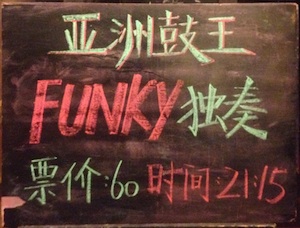 亚洲鼓王
FUNKY 独奏
票价:60 时间:21:15